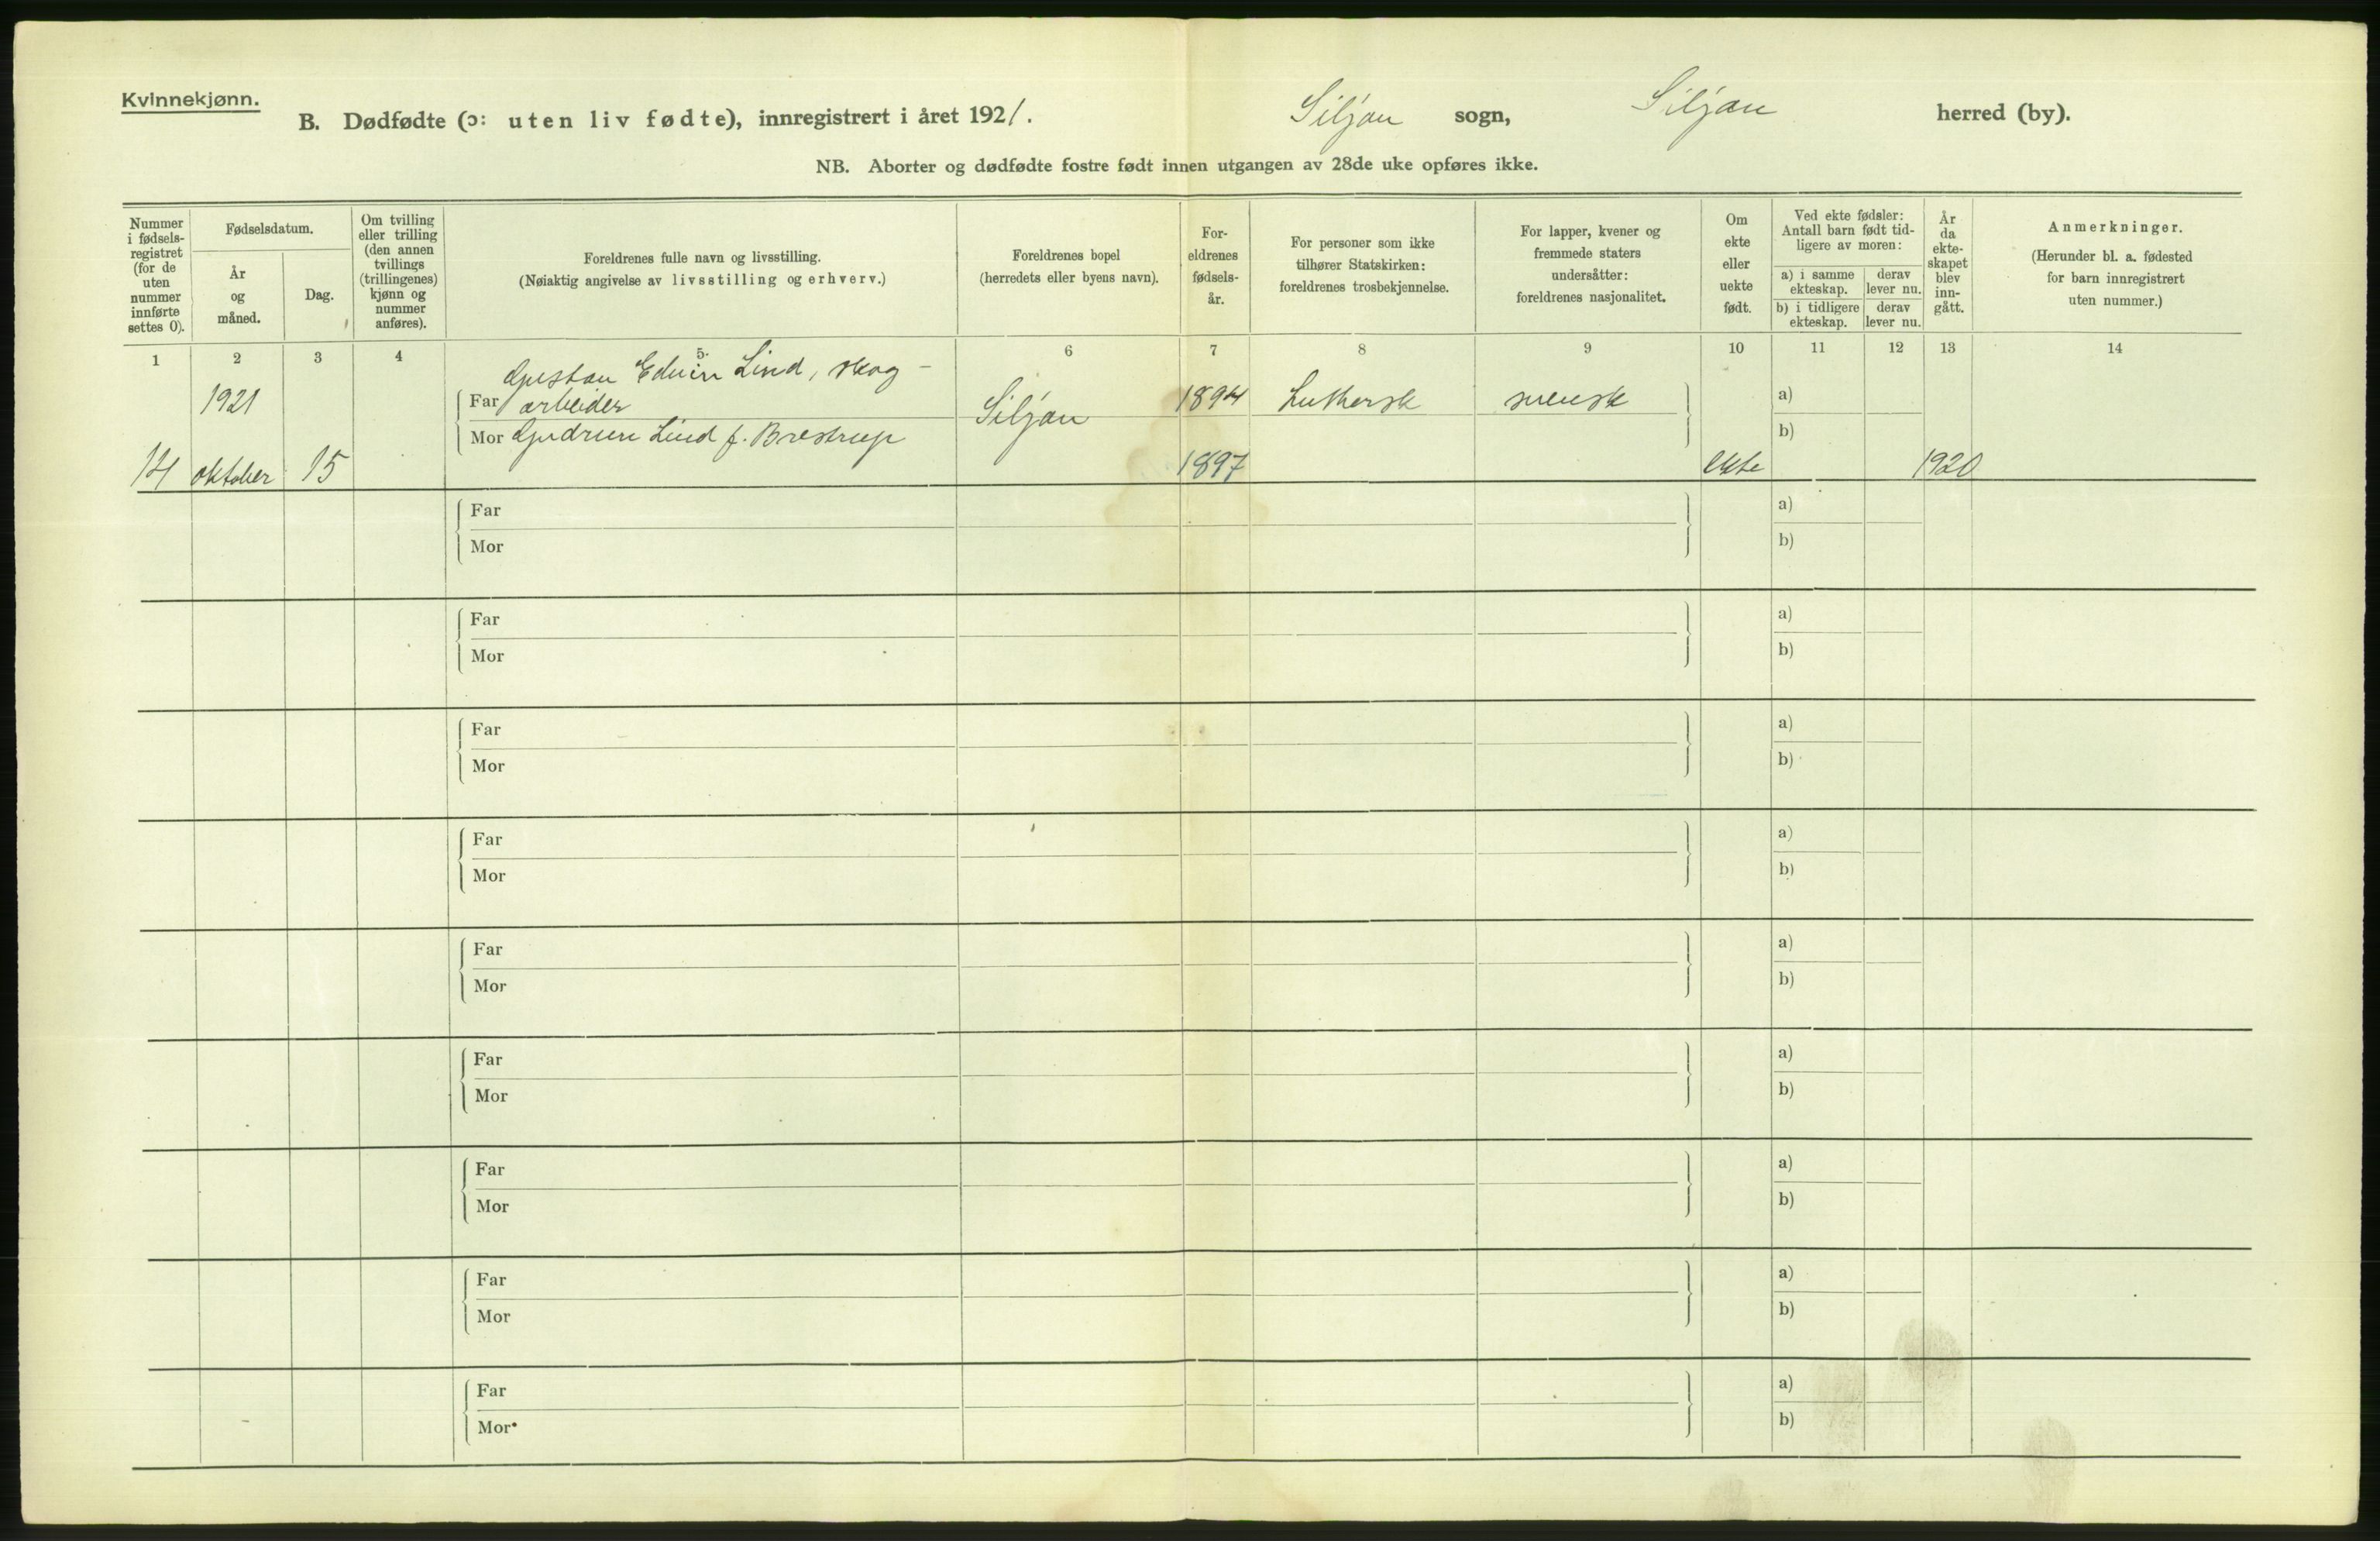 Kvinnekjønn.
B. Dødfødte (ɔ: uten liv fødte), innregistrert i året 1921.
Siljan sogn, Siljan herred (by).
NB. Aborter og dødfødte fostre født innen utgangen av 28de uke opføres ikke.
Nummer
i fødsels-
registret
(for de
uten
nummer
innførte
settes 0).
Fødselsdatum.
År
og
måned.
Dag.
Om tvilling
eller trilling
(den annen
tvillings
(trillingenes)
kjønn og
nummer
anføres).
Foreldrenes fulle navn og livsstilling.
(Nøiaktig angivelse av livsstilling og erhverv.)
Foreldrenes bopel
(herredets eller byens navn).
For-
eldrenes
fødsels-
år.
For personer som ikke
tilhører Statskirken:
foreldrenes trosbekjennelse.
For lapper, kvener og
fremmede staters
undersåtter:
foreldrenes nasjonalitet.
Om
ekte
eller
uekte
født.
Ved ekte fødsler:
Antall barn født tid-
ligere av moren:
a) i samme
ekteskap.
derav
lever nu.
b) i tidligere
ekteskap.
derav
lever nu.
År
da
ekte-
skapet
blev
inn-
gått.
Anmerkninger.
(Herunder bl. a. fødested
for barn innregistrert
uten nummer.)
1 2 3 4 5. 6 7 8 9 10 11 12 13 14
Gustav Edvin Lind, skog-
1921 Far arbeider Siljan 1894 Luthersk svensk a)
Mor Gudrun Lind f. Brestrup b)
14 oktober 15 1897 ekte 1920
Far a)
Mor b)
Far a)
Mor b)
Far a)
Mor b)
Far a)
Mor b)
Far a)
Mor b)
Far a)
Mor b)
Far a)
Mor b)
Far a)
Mor b)
Far a)
Mor b)